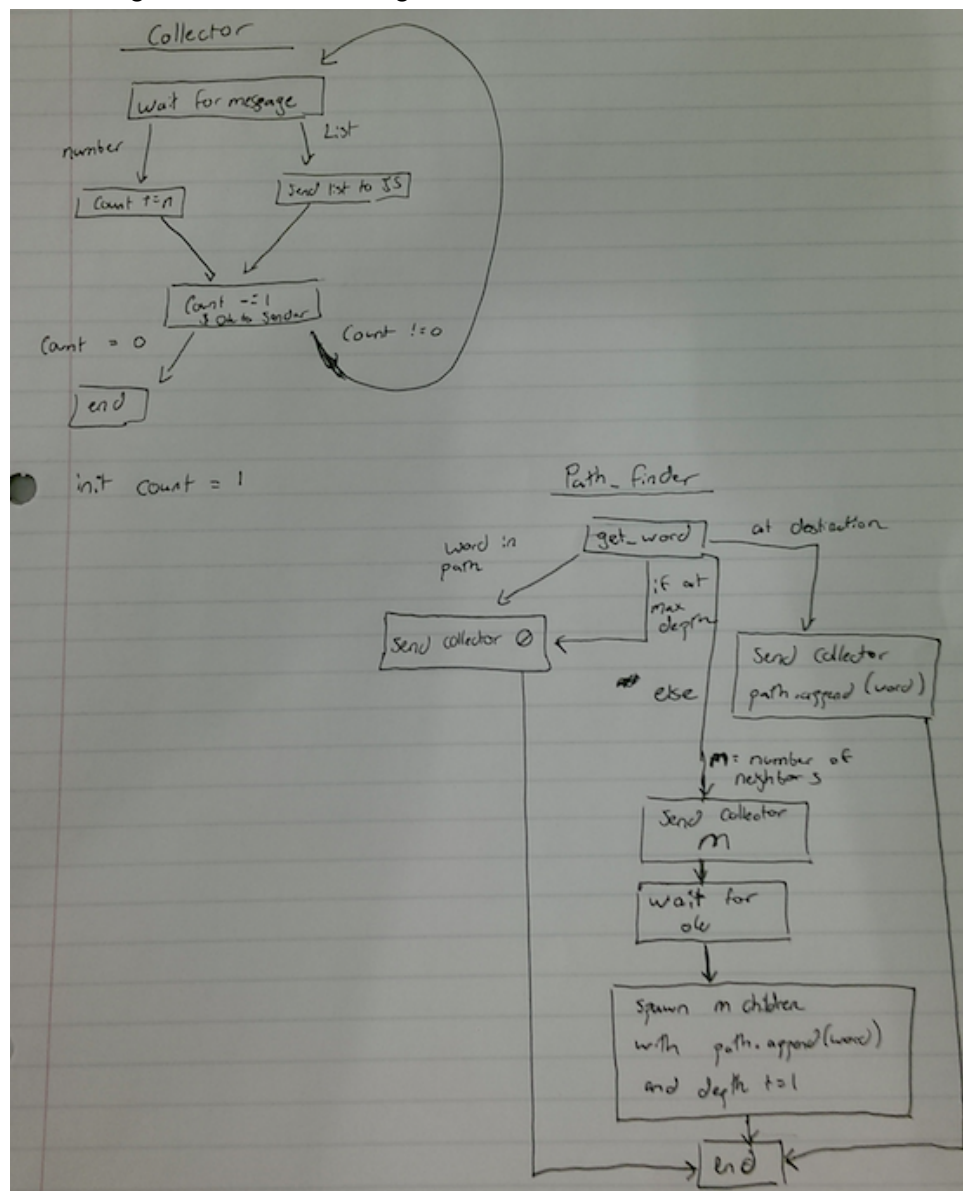 Collector
wait for message
number
List
Count += n
Send list to JS
Count -= 1
& ok to sender
Count = 0
Count != 0
end
init count = 1
Path_finder
get_word
at destination
word in
path
if at
max
depth
Send collector 0
Send Collector
path.append(word)
else
m = number of
neighbors
Send Collector
m
wait for
ok
spawn m children
with path.append(word)
and depth +=1
end